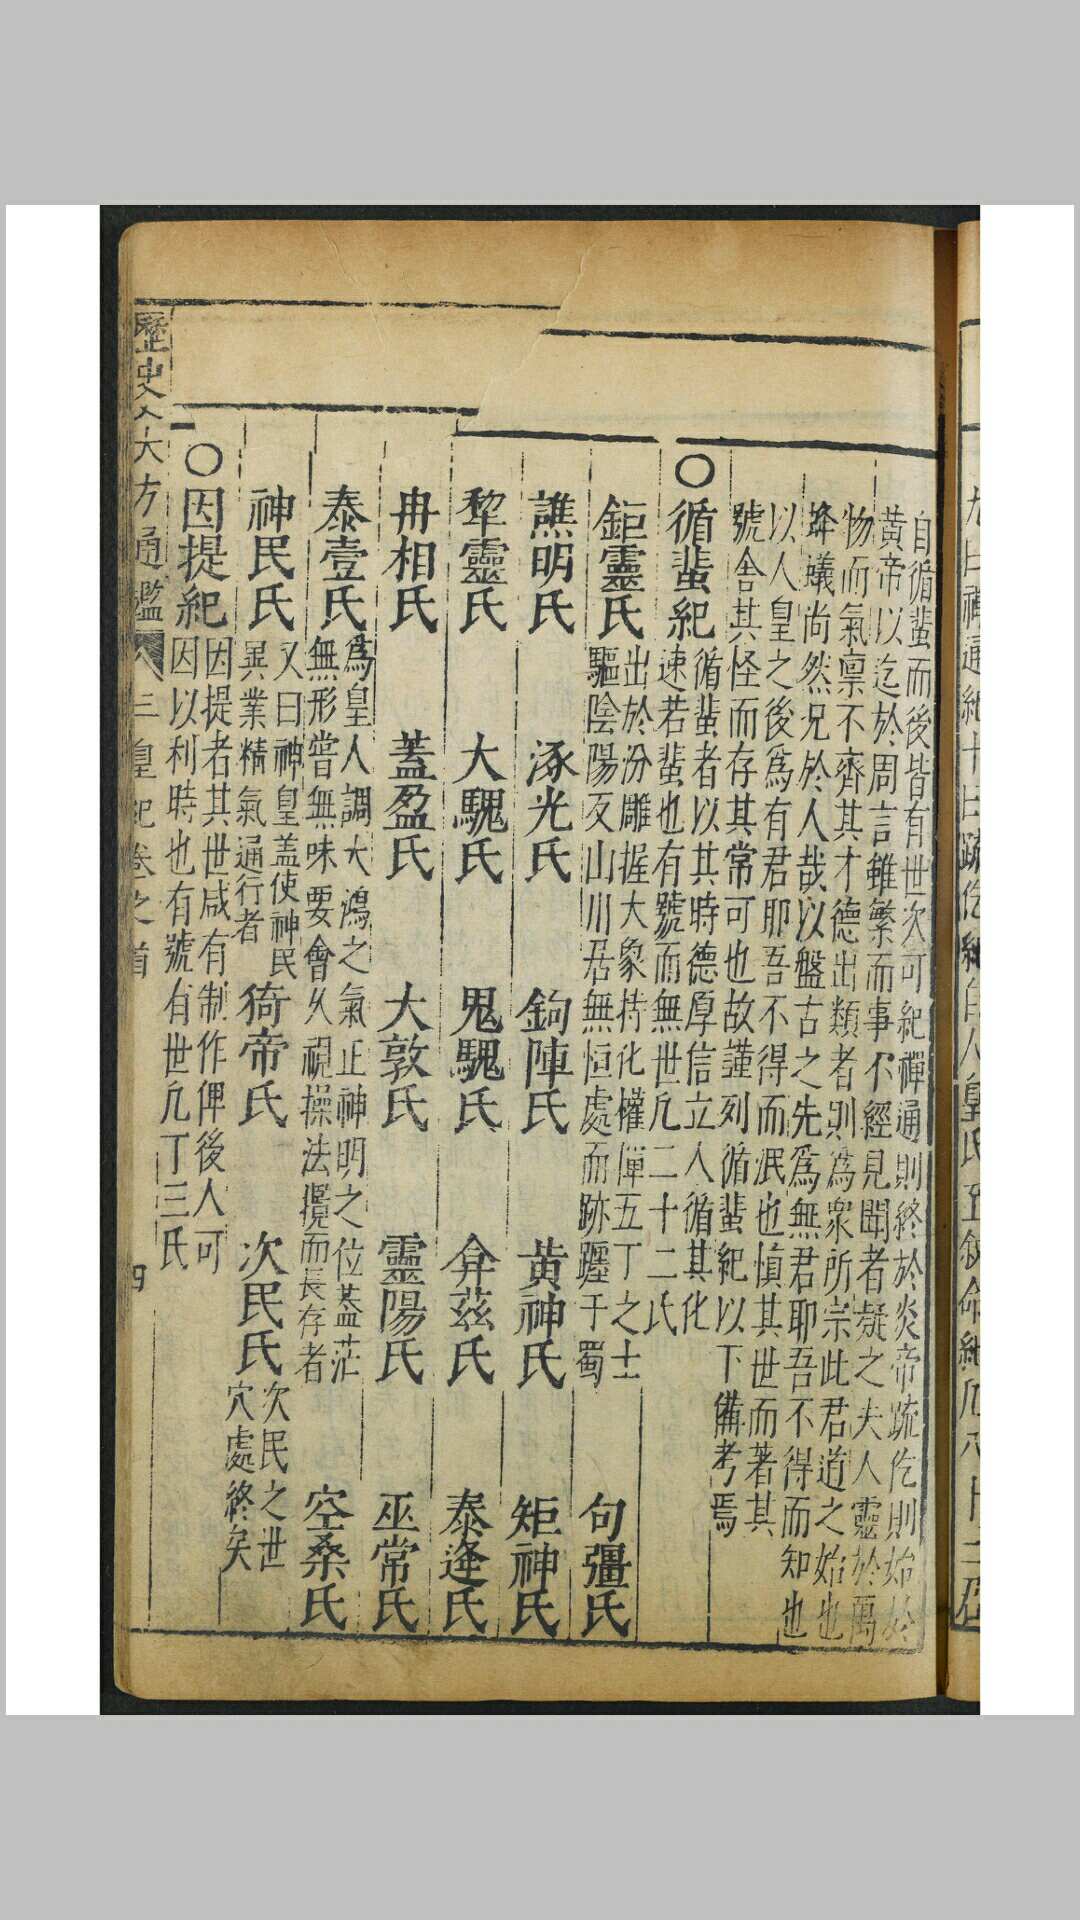 自循蜚而後皆有世次可紀禪通則終於炎帝䟽仡則始於
黃帝以迄於周言雖繁而事不經見聞者疑之夫人靈於萬
物而氣禀不齊其才德出類者則為衆所宗此君道之始也
蜂蟻尚然况於人哉以盤古之先為無君耶吾不得而知也
以人皇之後為有君耶吾不得而泯也慎其世而著其
號舍其怪而存其常可也故謹列循蜚紀以下備考焉
○循蜚紀
循蜚者以其時德厚信立人循其化
速若蜚也有號而無世凢二十二氏
鉅靈氏
出於汾雕握大象持化權僤五丁之士
驅陰陽反山川居無恒處而跡躔于蜀
句彊氏
譙明氏 涿光氏 鉤陣氏 黃神氏 矩神氏
犂靈氏 大騩氏 鬼騩氏 弇茲氏 泰逢氏
冉相氏 蓋盈氏 大敦氏 靈陽氏 巫常氏
泰壹氏
為皇人調大鴻之氣正神明之位葢茫
無形嘗無味要會乆視操法攬而長存者
空桑氏
神民氏
又曰神皇蓋使神民
異業精氣通行者
猗帝氏 次民氏
次民之世
穴處終矣
○因提紀
因提者其世咸有制作俾後人可
因以利時也有號有世凢丁三氏
歷史大方通鑑 三皇紀卷之首 四